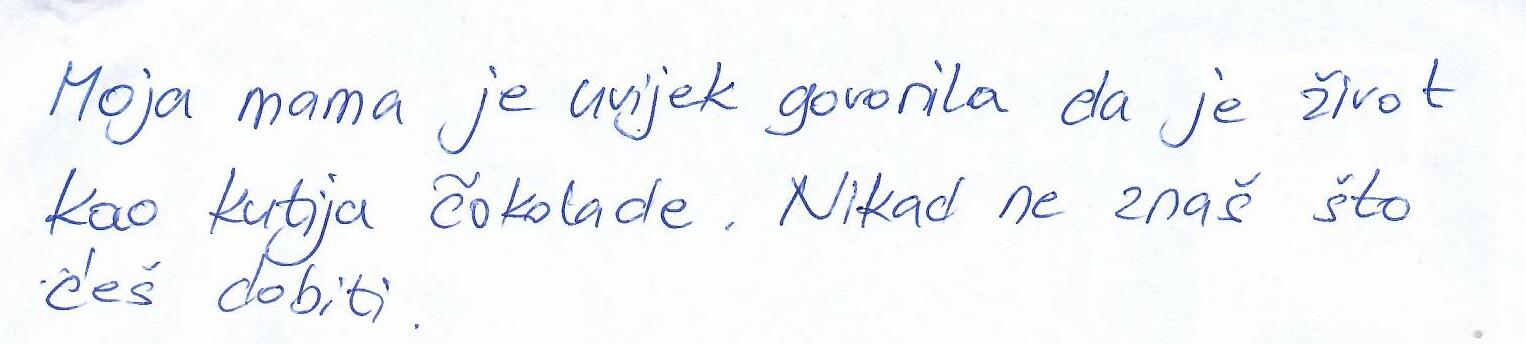 Moja mama je uvijek govorila da je život
kao kutija čokolade. Nikad ne znaš što
ćeš dobiti.